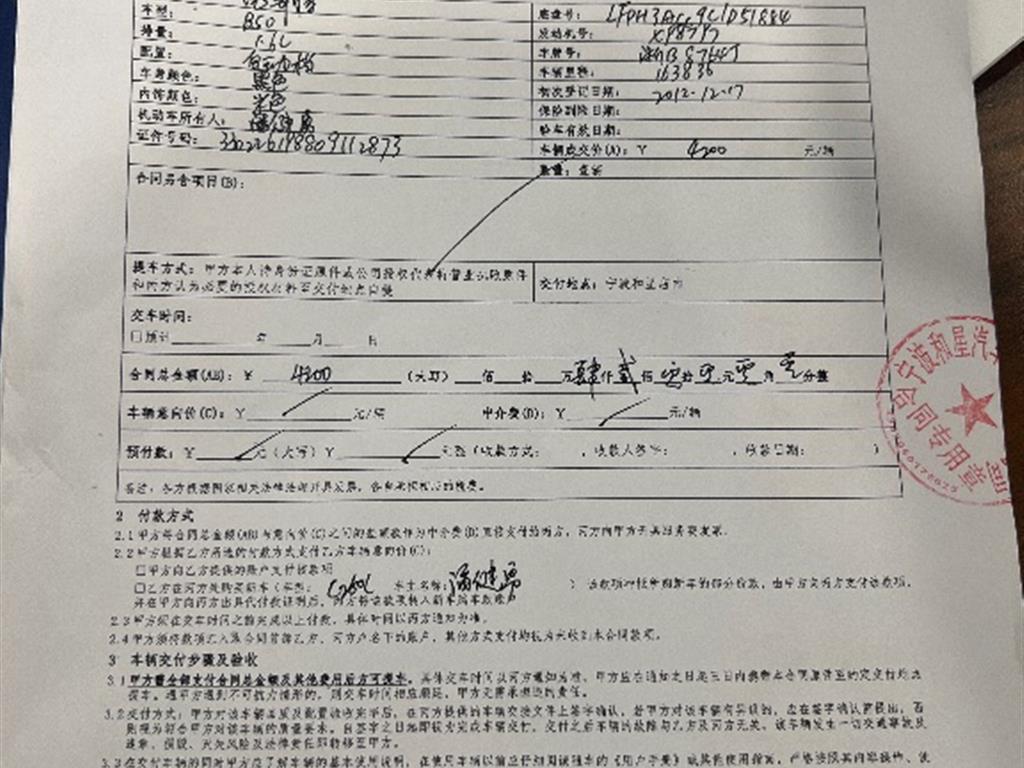 车型: B50
底盘号:
排量: 1.6L
发动机号:
配置:
车牌号:
车身颜色: 黑色
车辆里程: 163836
内饰颜色: 米色
初次登记日期: 2012-12-17
机动车所有人:
保险到期日期:
证件号码: 332226198809112873
验车有效日期:
车辆成交价(A): ¥ 4200 元/辆
合同另含项目(B):
提车方式: 甲方本人持身份证原件或公司授权代表持营业执照原件
和丙方认为必要的授权材料至交付地点自提
交付地点: 宁波和星店内
交车时间:
□预计 年 月 日
合同总金额(AB): ¥ 4200 (大写) 佰 拾 万 肆仟 贰佰 零拾 零元 零角 零分整
车辆意向价(C): ¥ 元/辆 中介费(D): ¥ 元/辆
预付款: ¥ 元(大写) ¥ 元整(收款方式: , 收款人签字: , 收款日期: )
备注:
2 付款方式
2.1 甲方将合同总金额(AB)与意向价(C)之间的差额款作为中介费(D)直接支付给丙方, 丙方向甲方开具服务费发票。
2.2 甲方根据乙方所选的付款方式支付乙方车辆意向价(C):
□甲方向乙方提供的账户支付该款项
□乙方在丙方处购买新车(车型: C260L 车主名称: 潘健勇 ) 该款项冲抵所购新车的部分价款, 由甲方向丙方支付该款项,
并在甲方向丙方出具代付款证明后,
2.3 甲方须在交车时间之前完成以上付款, 具体时间以丙方通知为准。
2.4 甲方须将款项汇入本合同首部乙方、丙方户名下的账户, 其他方式支付均视为未收到本合同款项。
3 车辆交付步骤及验收
3.1 甲方需全部支付合同总金额及其他费用后方可提车。具体交车时间以丙方通知为准, 甲方应在通知之日起三日内携带本合同原件至约定交付地点
提车。遇甲方遇到不可抗力情形的, 则交车时间相应顺延, 甲方无需承担违约责任。
3.2 交付方式: 甲方对该车辆品质及配置验收完毕后, 在丙方提供的车辆交接文件上签字确认, 若甲方对该车辆有异议的, 应在签字确认前提出, 否
则视为符合甲方对该车辆的质量要求。自签字之日起即视为完成车辆交付, 交付之后车辆的故障与乙方及丙方无关, 该车辆发生一切交通事故及
违章、损毁、灭失风险及法律责任即转移至甲方。
3.3 在交付车辆的同时甲方应了解车辆的基本使用说明, 在使用车辆以前应仔细阅读随车的《用户手册》或其他使用指南, 严格按照其内容操作、使
宁波和星汽车
合同专用章